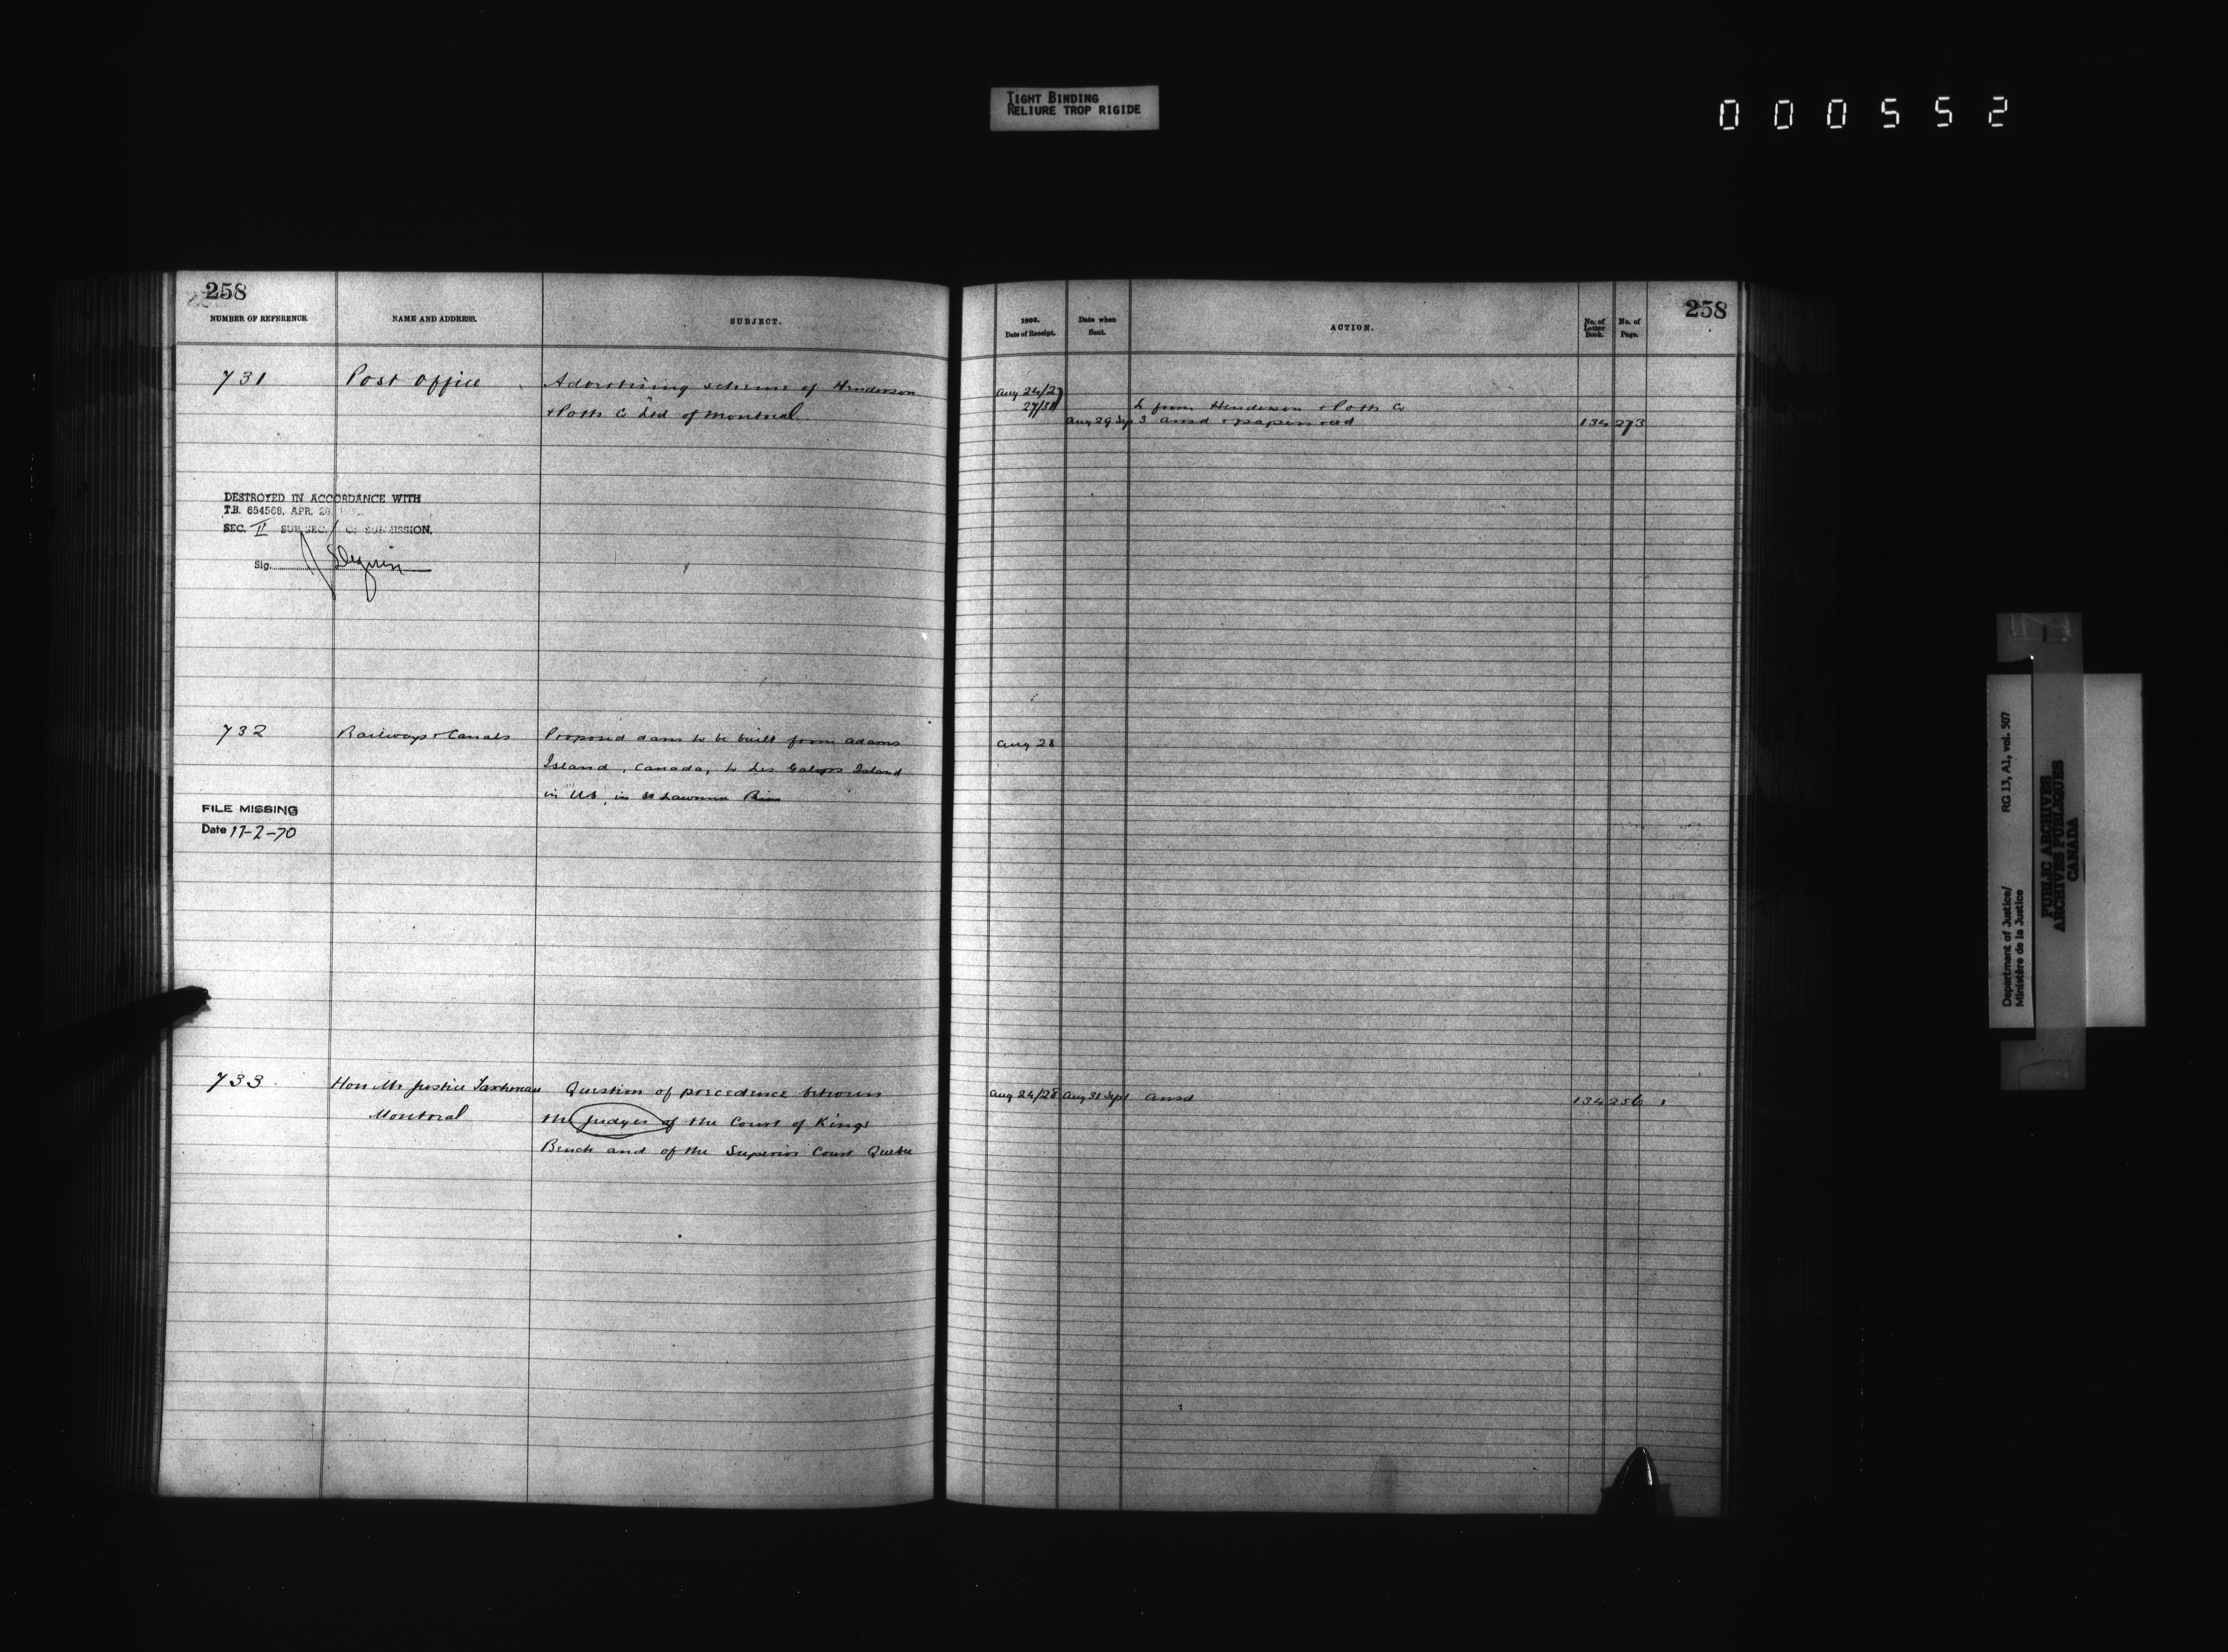 TIGHT BINDING
RELIURE TROP RIGIDE
000552
258
NUMBER OF REFERENCE. NAME AND ADDRESS. SUBJECT.
731 Post Office Advertising scheme of Henderson
+ Potts Co Ltd of Montreal
DESTROYED IN ACCORDANCE WITH
T.B. 654568, APR. 20
SEC. II SUB SEC. OF SUBMISSION.
Sig.
732 Railways + Canals Proposed dam to be built from Adams
Island, Canada, to Les Galops Island
in US, in St Lawrence River
FILE MISSING
Date 17-2-70
733. Hon Mr Justice Taschereau Question of precedence between
Montreal the Judges of the Court of Kings
Bench and of the Superior Court Quebec
258
1903. Date of Receipt. Date when Sent. ACTION. No. of Letter Book. No. of Page.
Aug 24/27
27/31 L from Henderson + Potts Co
Aug 29 Sep 3 ansd + papers retd 134 273
Aug 28
Aug 24/28 Aug 31 Sept 1 ansd 134 256
Department of Justice/
Ministère de la Justice
RG 13, A1, vol. 507
PUBLIC ARCHIVES
ARCHIVES PUBLIQUES
CANADA